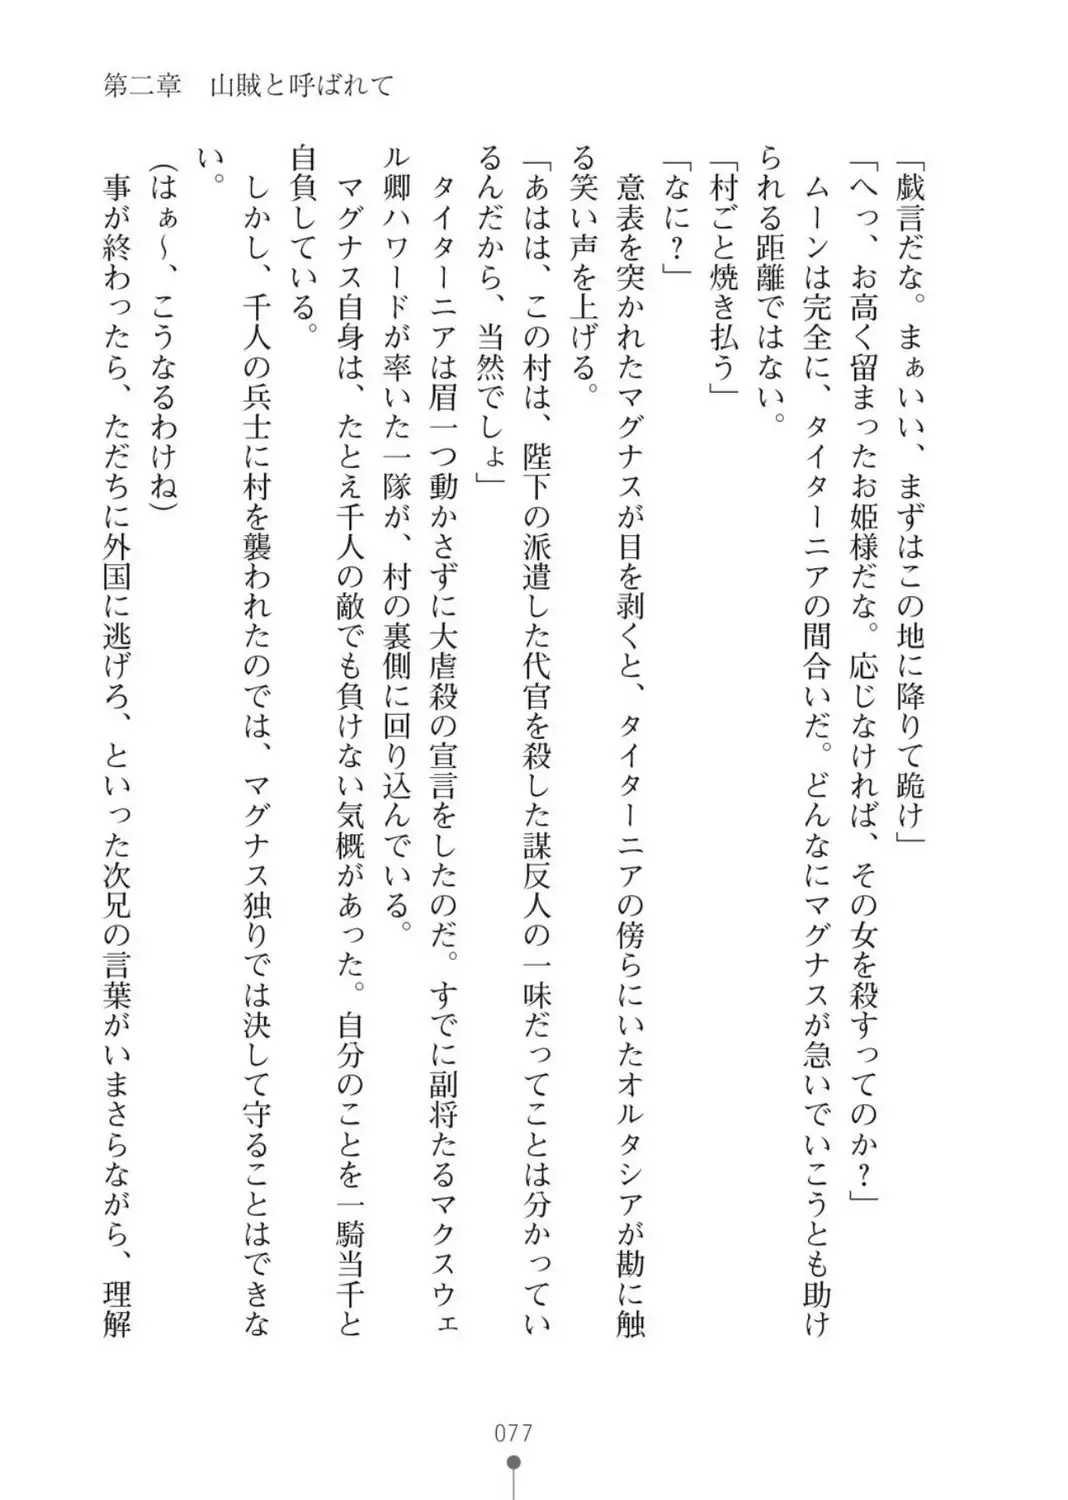 第二章　山賊と呼ばれて
「戯言だな。まぁいい、まずはこの地に降りて跪け」
「へっ、お高く留まったお姫様だな。応じなければ、その女を殺すってのか？」
　ムーンは完全に、タイターニアの間合いだ。どんなにマグナスが急いでいこうとも助け
られる距離ではない。
「村ごと焼き払う」
「なに？」
　意表を突かれたマグナスが目を剥くと、タイターニアの傍らにいたオルタシアが勘に触
る笑い声を上げる。
「あはは、この村は、陛下の派遣した代官を殺した謀反人の一味だってことは分かってい
るんだから、当然でしょ」
　タイターニアは眉一つ動かさずに大虐殺の宣言をしたのだ。すでに副将たるマクスウェ
ル卿ハワードが率いた一隊が、村の裏側に回り込んでいる。
　マグナス自身は、たとえ千人の敵でも負けない気概があった。自分のことを一騎当千と
自負している。
　しかし、千人の兵士に村を襲われたのでは、マグナス独りでは決して守ることはできな
い。
（はぁ～、こうなるわけね）
　事が終わったら、ただちに外国に逃げろ、といった次兄の言葉がいまさらながら、理解
077